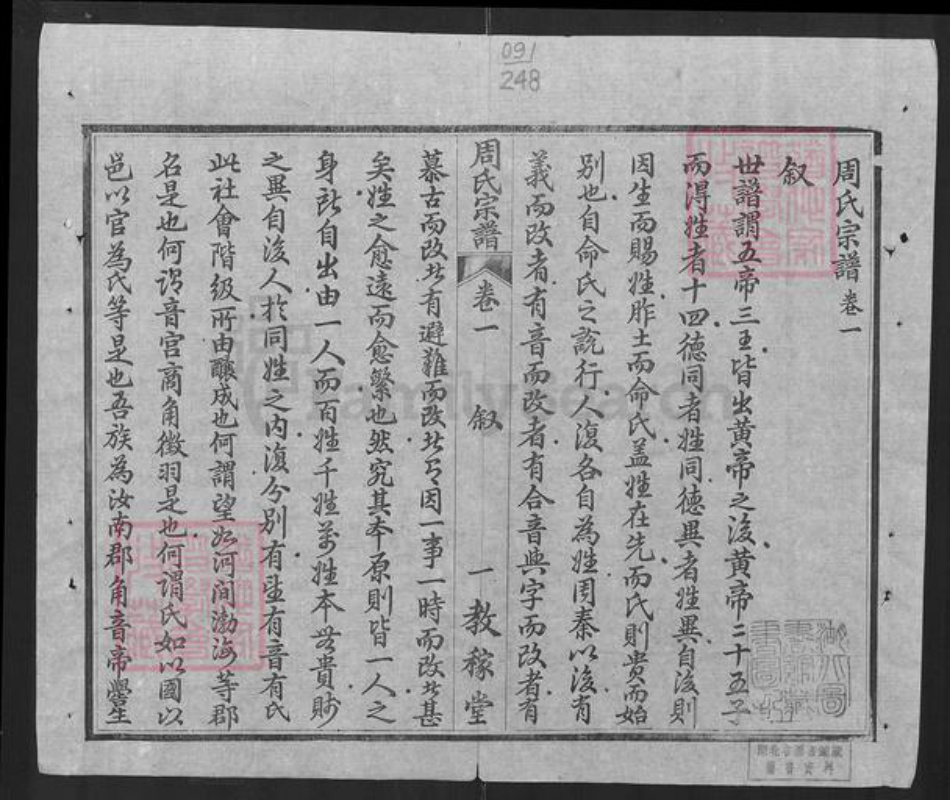 091
248
周氏宗譜卷一
叙
世譜謂五帝三王皆出黄帝之後黄帝二十五子
而得姓者十四德同者姓同德異者姓異自後則
因生而賜姓胙土而命氏盖姓在先而氏則貴而始
別也自命氏之說行人復各自為姓周秦以後有
義而改者有音而改者有合音典字而改者有
周氏宗譜
卷一
叙
一
教稼堂
慕古而改者有避難而改者有因一事一時而改者甚
矣姓之愈遠而愈繁也然究其本原則皆一人之
身所自出由一人而百姓千姓萬姓本無貴賤
之異自後人於同姓之内復分别有望有音有氏
此社會階級所由釀成也何謂望如河间渤海等郡
名是也何謂音宫商角徵羽是也何謂氏如以國以
邑以官為氏等是也吾族為汝南郡角音帝嚳生
FamilySearch